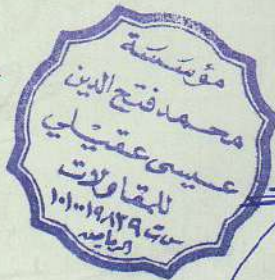 مؤسسة
محمد فتح الدين
عيسى عقيلي
للمقاولات
س.ت ١٠١٠٠١٩٨٣٩
الرياض